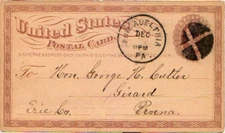 United States
POSTAL CARD
PHILADELPHIA
DEC
PM
PA
To Hon. George H. Cutler
Girard
Erie Co. Penna.